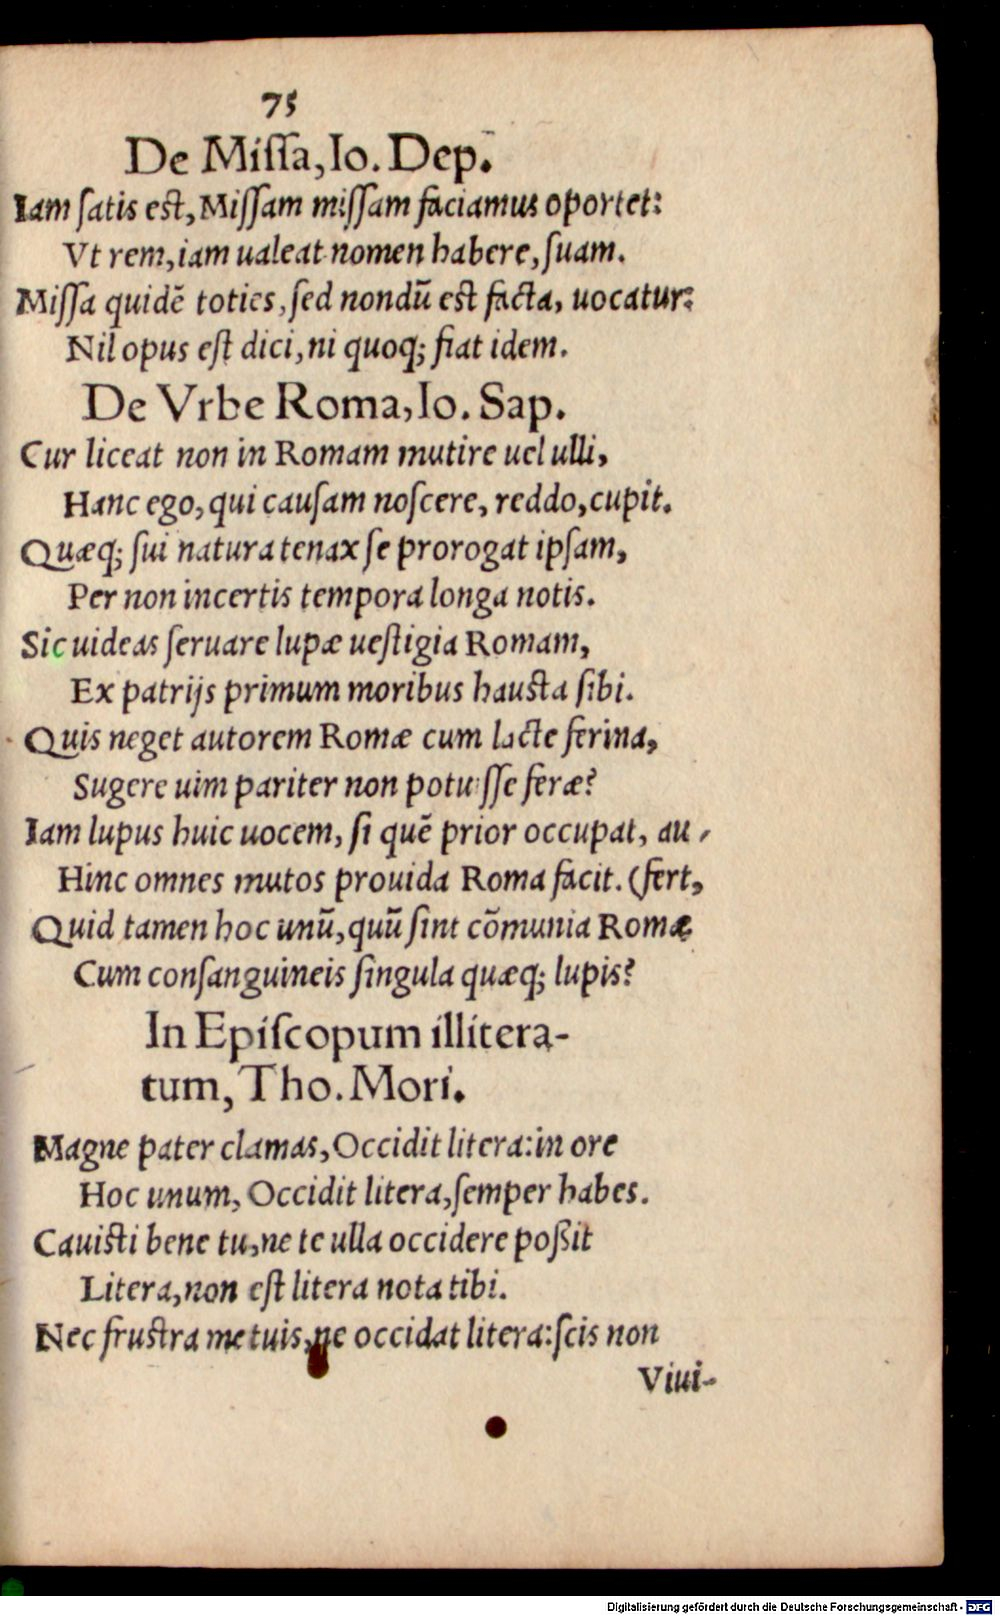 75
De Miſſa, Io. Dep.
Iam ſatis est, Miſſam miſſam faciamus oportet:
Vt rem, iam ualeat nomen habere, ſuam.
Miſſa quidē toties, ſed nondū est facta, uocatur:
Nil opus eſt dici, ni quoq; fiat idem.
De Vrbe Roma, Io. Sap.
Cur liceat non in Romam mutire uel ulli,
Hanc ego, qui cauſam noſcere, reddo, cupit.
Quæq; ſui natura tenax ſe prorogat ipſam,
Per non incertis tempora longa notis.
Sic uideas ſeruare lupæ ueſtigia Romam,
Ex patrijs primum moribus hausta ſibi.
Quis neget autorem Romæ cum lacte ferina,
Sugere uim pariter non potuiſſe feræ?
Iam lupus huic uocem, ſi quē prior occupat, au-
Hinc omnes mutos prouida Roma facit. (fert,
Quid tamen hoc unū, quū ſint cōmunia Romæ
Cum conſanguineis ſingula quæq; lupis?
In Epiſcopum illitera-
tum, Tho. Mori.
Magne pater clamas, Occidit litera: in ore
Hoc unum, Occidit litera, ſemper habes.
Cauisti bene tu, ne te ulla occidere poßit
Litera, non eſt litera nota tibi.
Nec frustra metuis, ne occidat litera: ſcis non
Viui-
Digitalisierung gefördert durch die Deutsche Forschungsgemeinschaft - DFG